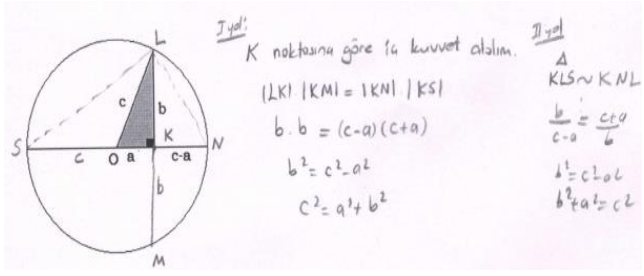 L
c
b
K
S
c
O
a
c-a
N
b
M
I.yol:
K noktasına göre iç kuvvet alalım.
|LK| |KM| = |KN| |KS|
b.b = (c-a)(c+a)
b² = c²-a²
c² = a²+b²
II.yol
Δ
KLS ~ KNL
b/c-a = c+a/b
b² = c²-a²
b²+a² = c²